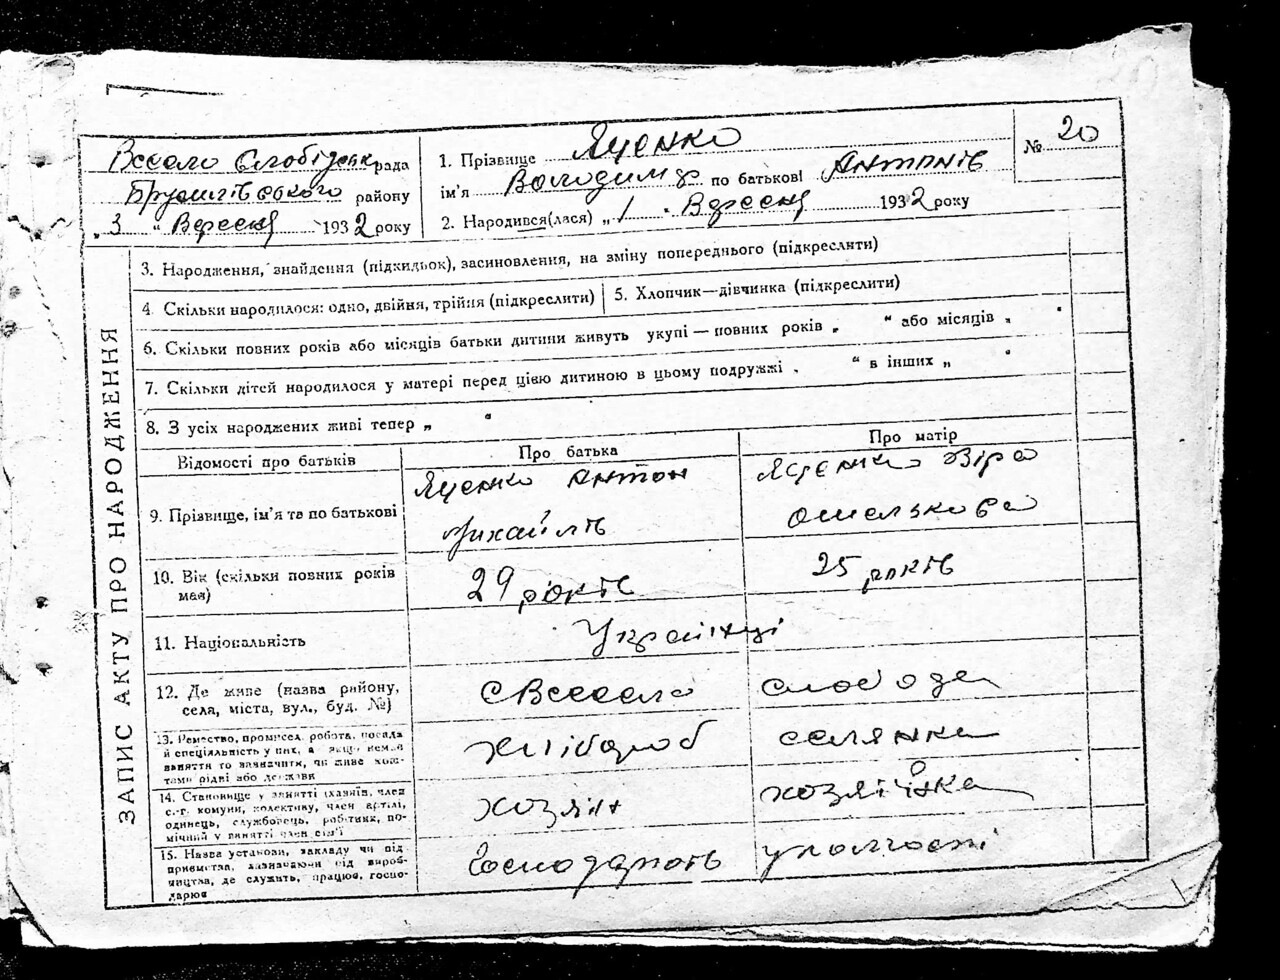 Весело Слобідськ рада
Брусилівського району
„ 3 “ Вересня 1932 року
1. Прізвище Яценко
ім'я Володимир по батькові Антонів
2. Народився(лася) „ 1 “ Вересня 1932 року
№ 20
ЗАПИС АКТУ ПРО НАРОДЖЕННЯ
3. Народження, знайдення (підкидьок), засиновлення, на зміну попереднього (підкреслити)
4. Скільки народилося: одно, двійня, трійня (підкреслити)
5. Хлопчик—дівчинка (підкреслити)
6. Скільки повних років або місяців батьки дитини живуть укупі — повних років „ “ або місяців „ “
7. Скільки дітей народилося у матері перед цією дитиною в цьому подружжі „ “ в інших „ “
8. З усіх народжених живі тепер „ “
Відомості про батьків
Про батька
Про матір
9. Прізвище, ім'я та по батькові
Яценко Антон
Михайлів
Яценко Віра
Омелькова
10. Вік (скільки повних років
має)
29 років
25 років
11. Національність
Українці
12. Де живе (назва району,
села, міста, вул., буд. №)
с Весело слобода
13. Ремество, промисел, робота, посада
й спеціяльність у них, а якщо немає
заняття то зазначити, чи живе кош-
тами рідні або держави
хлібороб
селянка
14. Становище у занятті (хазяїн, член
с.-г. комуни, колективу, член артілі,
одинець, службовець, робітник, по-
мічний у занятті член сім'ї
хозяїн
хозяйка
15. Назва установи, закладу чи під-
приємства, зазначаючи рід вироб-
ництва, де служить, працює, госпо-
дарює
Господарють